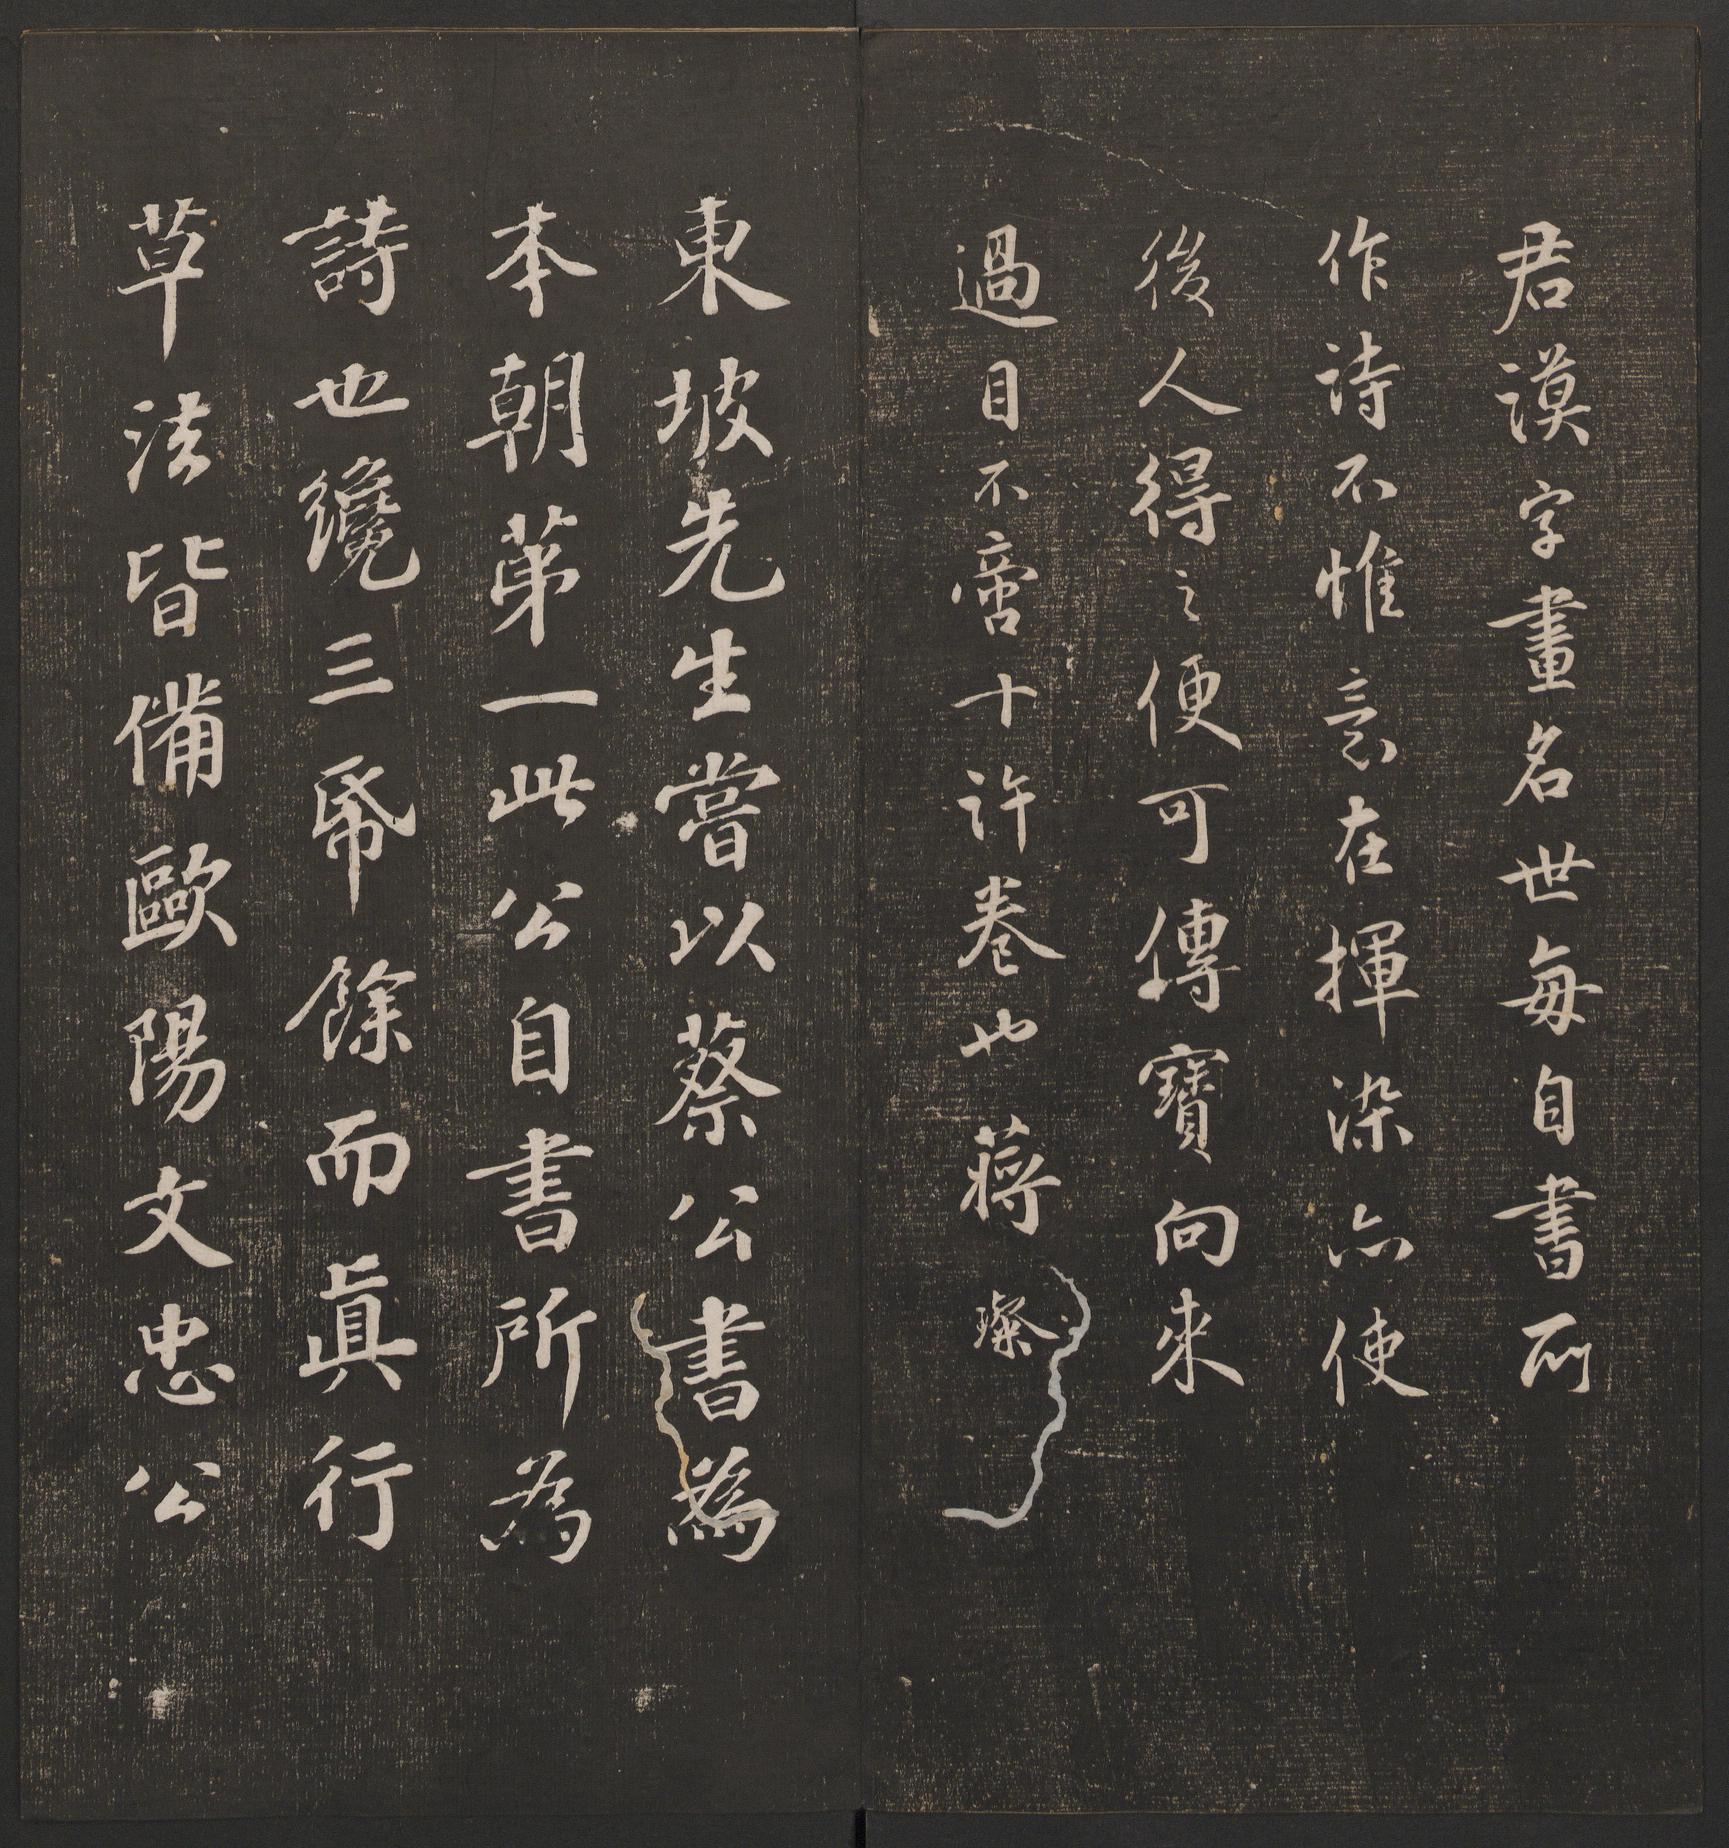 君謨字畫名世每自書所
作詩不惟意在揮染亦使
後人得之便可傳寶向來
過目不啻十許卷也蔣璨
東坡先生嘗以蔡公書為
本朝第一此公自書所為
詩也纔三帋餘而真行
草法皆備歐陽文忠公